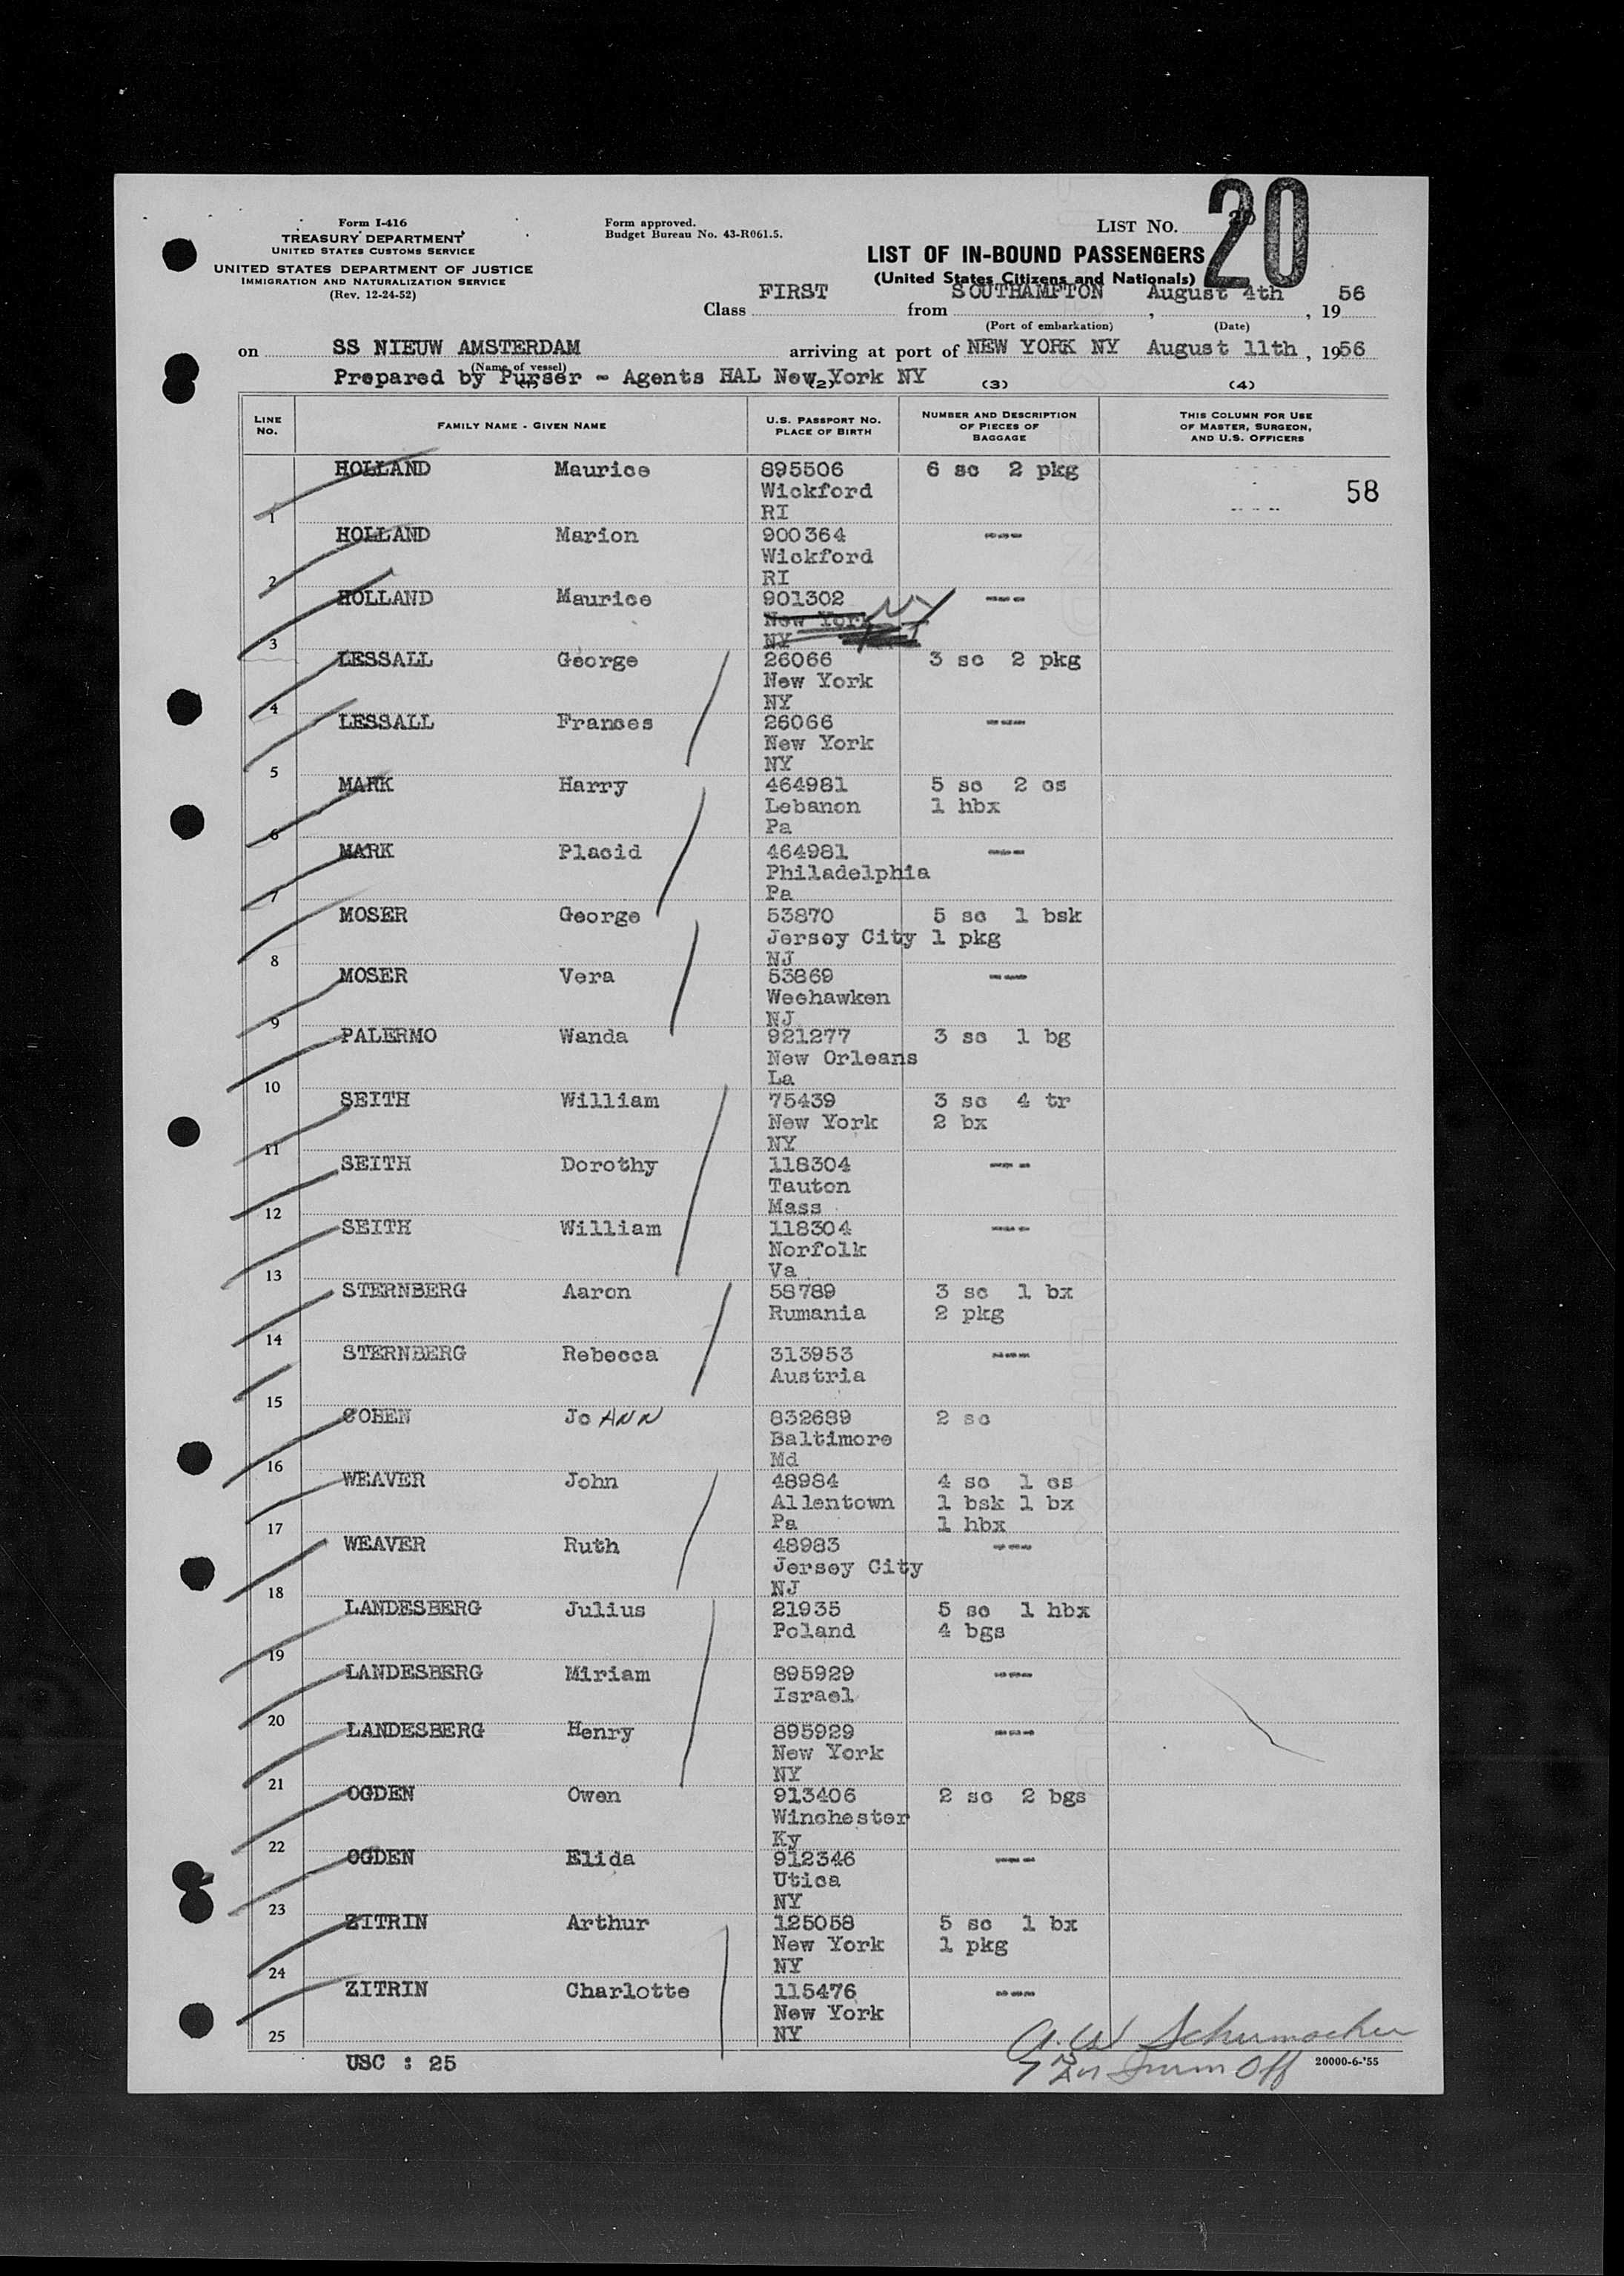 Form I-416
TREASURY DEPARTMENT
UNITED STATES CUSTOMS SERVICE
UNITED STATES DEPARTMENT OF JUSTICE
IMMIGRATION AND NATURALIZATION SERVICE
(Rev. 12-24-52)
Form approved.
Budget Bureau No. 43-R061.5.
LIST NO. 20
20
LIST OF IN-BOUND PASSENGERS
(United States Citizens and Nationals)
Class FIRST from SOUTHAMPTON, August 4th, 1956
(Port of embarkation) (Date)
on SS NIEUW AMSTERDAM arriving at port of NEW YORK NY August 11th, 1956
(Name of vessel)
Prepared by Purser - Agents HAL New York NY
(2) (3) (4)
LINE NO. FAMILY NAME - GIVEN NAME U.S. PASSPORT NO. PLACE OF BIRTH NUMBER AND DESCRIPTION OF PIECES OF BAGGAGE THIS COLUMN FOR USE OF MASTER, SURGEON, AND U.S. OFFICERS
HOLLAND Maurice 895506 6 sc 2 pkg
Wickford 58
1 RI
HOLLAND Marion 900364 ---
Wickford
2 RI
HOLLAND Maurice 901302 ---
New York NY
3 NY
LESSALL George 26066 3 sc 2 pkg
New York
4 NY
LESSALL Frances 26066 ---
New York
5 NY
MARK Harry 464981 5 sc 2 cs
Lebanon 1 hbx
6 Pa
MARK Placid 464981 ---
Philadelphia
7 Pa
MOSER George 53870 5 sc 1 bsk
Jersey City 1 pkg
8 NJ
MOSER Vera 53869 ---
Weehawken
9 NJ
PALERMO Wanda 921277 3 sc 1 bg
New Orleans
10 La
SEITH William 75439 3 sc 4 tr
New York 2 bx
11 NY
SEITH Dorothy 118304 ---
Tauton
12 Mass
SEITH William 118304 ---
Norfolk
13 Va
STERNBERG Aaron 58789 3 sc 1 bx
Rumania 2 pkg
14
STERNBERG Rebecca 313953 ---
Austria
15
COHEN Jo ANN 832689 2 sc
Baltimore
16 Md
WEAVER John 48984 4 sc 1 cs
Allentown 1 bsk 1 bx
17 Pa 1 hbx
WEAVER Ruth 48983 ---
Jersey City
18 NJ
LANDESBERG Julius 21935 5 sc 1 hbx
Poland 4 bgs
19
LANDESBERG Miriam 895929 ---
Israel
20
LANDESBERG Henry 895929 ---
New York
21 NY
OGDEN Owen 913406 2 sc 2 bgs
Winchester
22 Ky
OGDEN Elida 912346 ---
Utica
23 NY
ZITRIN Arthur 125058 5 sc 1 bx
New York 1 pkg
24 NY
ZITRIN Charlotte 115476 ---
New York
25 NY
A.W. Schumacher
USC : 25
Imm Off
20000-6-'55